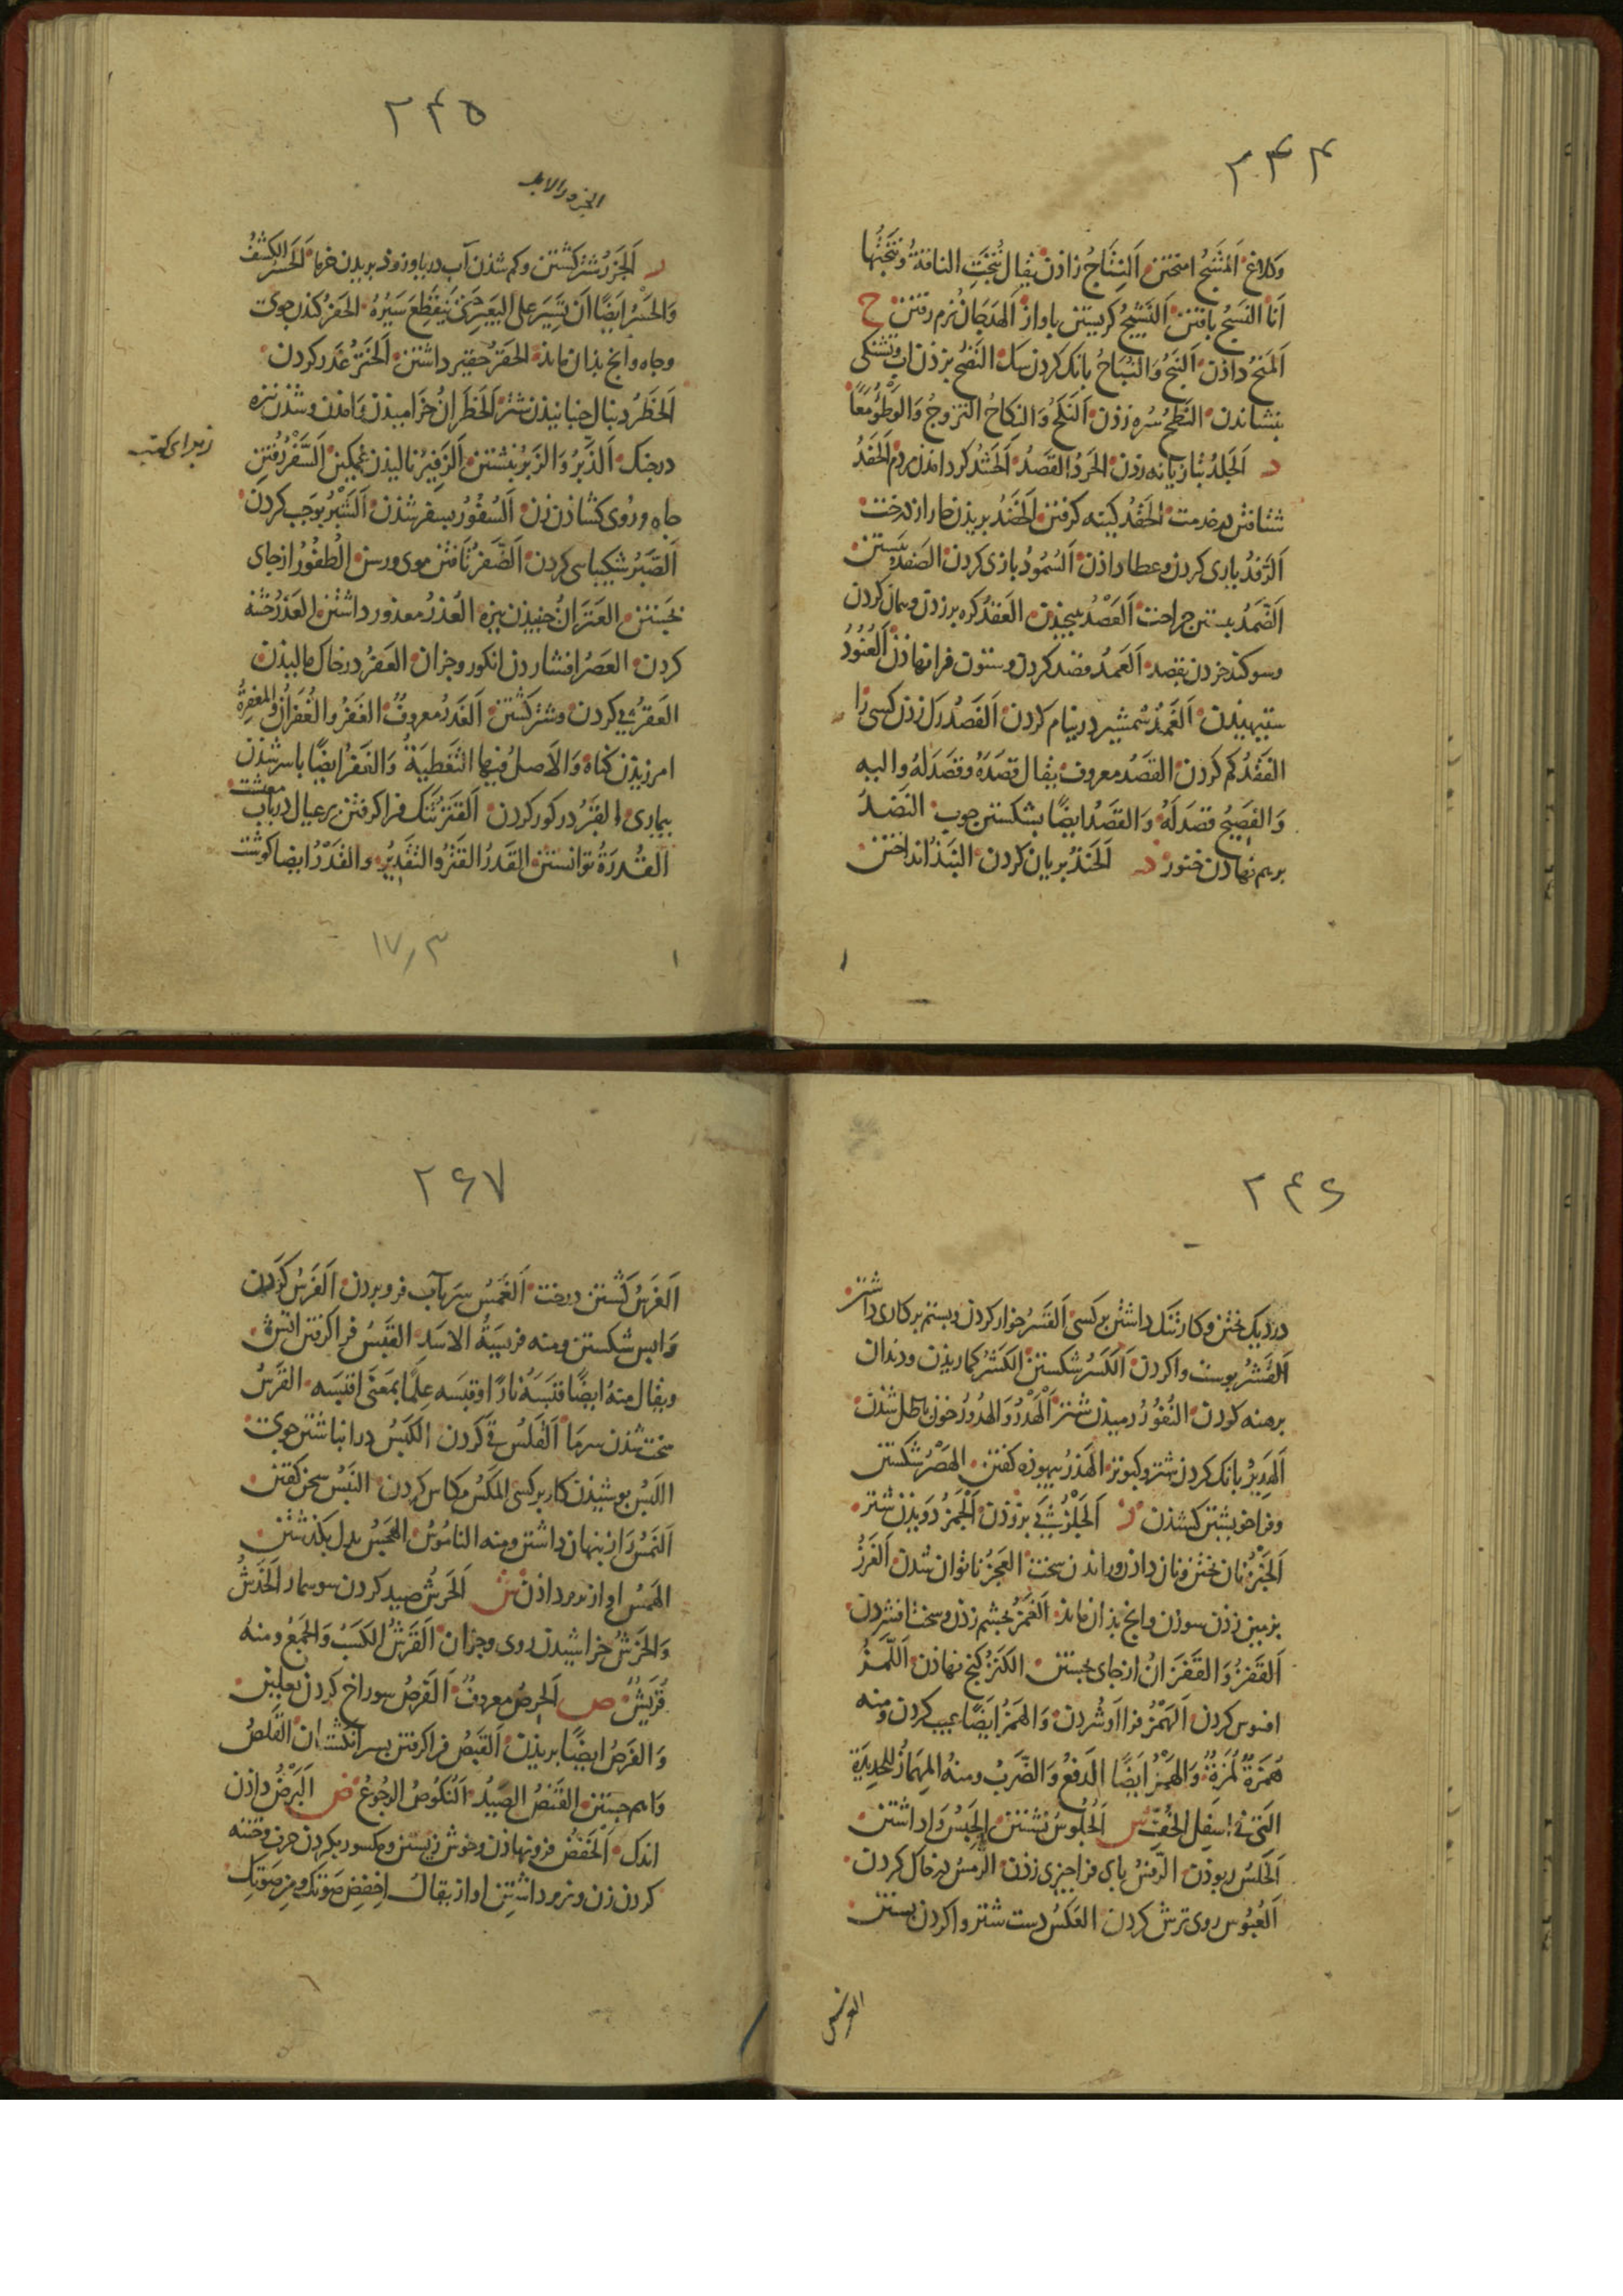 ۲۴۴
وکلاغ اَلمَشجُ امیختن اَلنِتَاجُ زاذن یقال نُتِجَتِ الناقةُ ونَتَجَهَا
اَنَا النَسجُ بافتن اَلنَشیجُ کریستن باواز اَلهَدَجَانُ نرم رفتن ح
اَلمَنحُ داذن اَلنَبحُ وَالنُبَاحُ بانک کردن سک النَضحُ بر زذن اب وتشنکی
بنشاندن النَطحُ سُره زذن اَلنَکحُ وَالنِکاحُ التزوجُ وَالوَطؤُ مَعًا
د اَلجَلدُ بتازیانه زذن الحَردُ القَصدُ اَلحَشدُ کرد امذن مردم اَلحَفدُ
شتافتن در خدمت الحَقدُ کینه کرفتن اَلخَضدُ بریذن خار از درخت
اَلرَفدُ یاری کردن وعطا داذن اَلسُمُودُ بازی کردن الصَفدُ بستن
اَلضَمدُ بستن جراحت اَلعَصدُ پیچیذن العَقدُ کره بر زدن وپیمان کردن
وسوکند خردن بقصد اَلعَمدُ قصد کردن وستون فرا نهاذن اَلعُنُودُ
ستیهیذن اَلغَمدُ شمشیر در نیام کردن اَلفَصدُ رک زدن کسی را
الفَقدُ کم کردن القَصدُ معروف یقال قصَدَهُ وقصَدَ لهُ والیه
وَالفصیحُ قصَدَ لَهُ وَالقَصدُ ایضًا بشکستن چوب النَضدُ
برهم نهاذن خنور ذ اَلحَنذُ بریان کردن النَبذُ انداختن
۲۴۵
الجزر والابل
ر اَلجَزرُ شتر کشتن وکم شذن آب دریا وزوذ بریدن خرما اَلحَسرُ الکَشفُ
وَالحَسرُ ایضًا اَن تَسِیرَ علی البَعیرِ حَتّی یَنقَطِعَ سَیرُهُ الحَفرُ کندن جوی
وجاه وانج بذان ماند الحَقرُ حقیر داشتن اَلخَترُ غَدر کردن
اَلخَطرُ دنبال جنبانیذن شتر اَلخَطَرانُ خرامیذن وَامذن وشذن نیزه
درجنک اَلذَبرُ وَالزَبرُ نبشتن اَلزَفیرُ نالیذن غمکین اَلسَفرُ رفتن
جاه وروی کشاذن زن اَلسُفُورُ بسفر شذن اَلشَبرُ بوَجَب کردن
اَلصَبرُ شکیبایی کردن اَلضَفرُ تافتن موی ورسن اَلطُفُورُ از جای
بجَستن العَتَرانُ جنبیذن نیزه العُذرُ معذور داشتن العَذرُ ختنه
کردن العَصرُ افشاردن انکور وجزان العَفرُ در خاک مالیذن
العَقرُ پی کردن وشتر کشتن اَلغَدرُ معروفُ الغَفرُ والغُفرَانُ والمَغفِرةُ
امرزیذن کناه وَالاَصلُ فیها التَغطیَةُ وَالغَفرُ ایضًا باسر شذن
بیماری القَبرُ در کور کردن اَلقَترُ تنک فرا کرفتن بر عیال در باب معیشت
القُدرَةُ توانستن القَدرُ القَترُ والتَقدِیرُ والقَدرُ ایضا کوشت
۱۷٫۳
۲۴۶
در دیک پختن وکار تنک داشتن بر کسی اَلقَسرُ خوار کردن وبستم بر کاری داشتن
اَلقَشرُ پوست واکردن اَلکَسرُ شکستن الکَشرُ کماریذن ودندان
برهنه کردن النُفُورُ رمیذن شتر اَلهَدرُ وَالهُدُورُ خون باطل شذن
اَلهَدِیرُ بانک کردن شتر وکبوتر الهَذرُ بیهوذه کفتن الهَصرُ شکستن
وفراخویشتن کشذن ز اَلجَلزُ پی بر زدن اَلجَمزُ دَویذن شتر
اَلخَبزُ نان پختن ونان داذن وراندن سخت العَجزُ ناتوان شدن اَلغَرزُ
بزمین زدن سوزن وانج بذان ماند اَلغَمزُ بجشم زدن وسخت افشردن
اَلقَفزُ وَالقَفَزَانُ از جای بجستن الکَنزُ کنج نهاذن اَللَمزُ
افسوس کردن اَلهَمزُ فرا افشردن وَالهَمزُ ایضًا عیب کردن ومنه
هُمَزَةٌ لُمَزَةٌ وَالهَمزُ ایضًا الدَفعُ وَالضَربُ ومنهُ المِهمَازُ للحدِیدَةِ
الَتی فی اسفل الخُفِّ س اَلجُلوسُ نشستن اَلحَبسُ وَاداشتن
اَلخَلسُ ربوذن الرَفسُ پای فرا چیزی زذن اَلرَمسُ در خاک کردن
اَلعُبُوس روی ترش کردن العَکسُ دست شتر واکردن بستن
۲۶۷
اَلغَرسُ کشتن درخت اَلغَمسُ سر بآب فرو بردن اَلفَرسُ کردن
وَابس شکستن ومنه فریسَةُ الاسَدِ القَبسُ فرا کرفتن اتش
ویقال منهُ ایضًا قبَسَهُ نارًا وقبَسه عِلمًا بمَعنَی اقتبَسه القَرسُ
سخت شذن سرما اَلقَلسُ قی کردن الکَبسُ در انباشتن جوی
اللَبسُ بپوشیذن کار بر کسی المَکسُ مکاس کردن النَبسُ سخن کفتن
اَلنَمسُ راز پنهان داشتن ومنه النامُوسُ الهَجسُ بدل بکذشتن
الهَمسُ اواز نرم داذن ش اَلحَرشُ صید کردن سوسمار اَلخَدشُ
وَالخَرشُ خراشیدن روی وجزان اَلقَرشُ الکَسبُ وَالجَمعُ ومنهُ
قُرَیشُ ص اَلحِرصُ معروفُ اَلفَرصُ سوراخ کردن نعلین
وَالفَرصُ ایضًا بریذن اَلقَبصُ فرا کرفتن بسر انکشتان القَلصُ
وَاهم جستن القَنصُ الصیدُ اَلنُکوُصُ الرجُوعُ ض اَلبَرضُ داذن
اندک اَلخَفضُ فرو نهاذن وخوش زیستن ومکسور بکردن حرف وختنه
کردن زن ونرم داشتن اواز یقالُ اخفِض صَوتَکَ ومِن صَوتِکَ